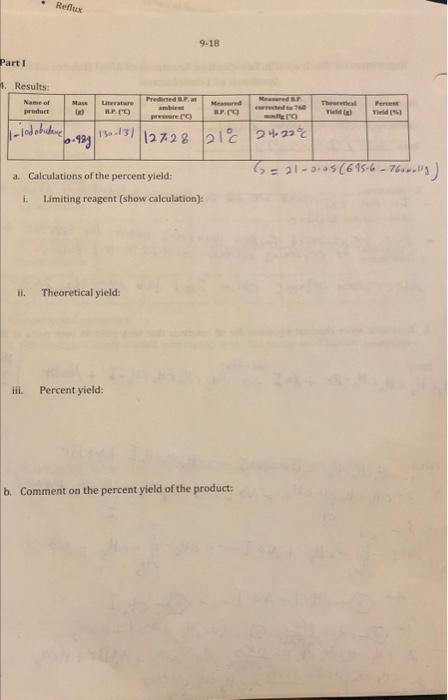 • Reflux
9-18
Part I
1. Results:
Name of product
Mass (g)
Literature B.P. (°C)
Predicted B.P. at ambient pressure (°C)
Measured B.P. (°C)
Measured B.P. corrected to 760 mmHg (°C)
Theoretical Yield (g)
Percent Yield (%)
1-Iodobutane 0.98g 130-131 127.28 21°C 24.22°C
↳ = 21 - 0.05 (695.6 - 760mmHg)
a. Calculations of the percent yield:
i. Limiting reagent (show calculation):
ii. Theoretical yield:
iii. Percent yield:
b. Comment on the percent yield of the product: